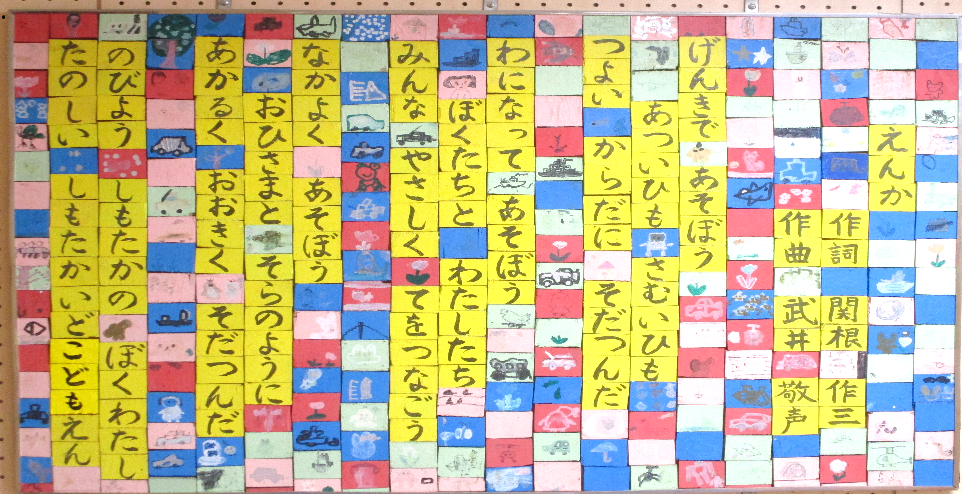 えんか
作詞 関根 作三
作曲 武井 敬声
げんきで あそぼう
あついひも さむいひも
つよい からだに そだつんだ
わになって あそぼう
ぼくたちと わたしたち
みんな やさしく てをつなごう
なかよく あそぼう
おひさまと そらのように
あかるく おおきく そだつんだ
のびよう しもたかの ぼくわたし
たのしい しもたかいどこどもえん